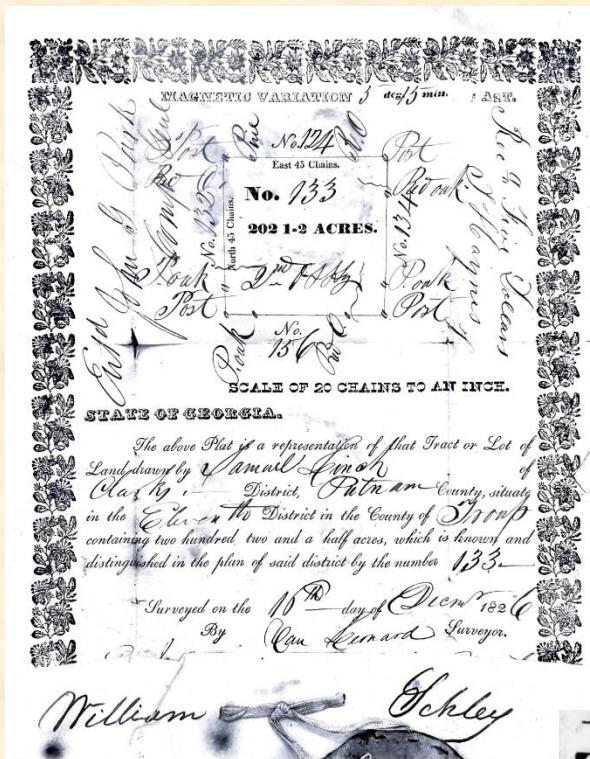 MAGNETIC VARIATION 5 deg 15 min. EAST.
Post Pine No. 124 R.O Post
East 45 Chains.
No. 133
202 1-2 ACRES.
North 45 Chains.
No. 132
No. 134
Red oak
P.oak
Post
P.oak
Post
P.oak
No.
156
Ent'd John G Park
Rec'd Five Dollars
T Haynes
SCALE OF 20 CHAINS TO AN INCH.
STATE OF GEORGIA.
The above Plat is a representation of that Tract or Lot of
Land drawn by Samuel Finch of
Clarks District, Putnam County, situate
in the Eleventh District in the County of Troup
containing two hundred, two and a half acres, which is known and
distinguished in the plan of said district by the number 133
Surveyed on the 16th day of Decmr 1826
By Dan Leonard Surveyor.
William Schley